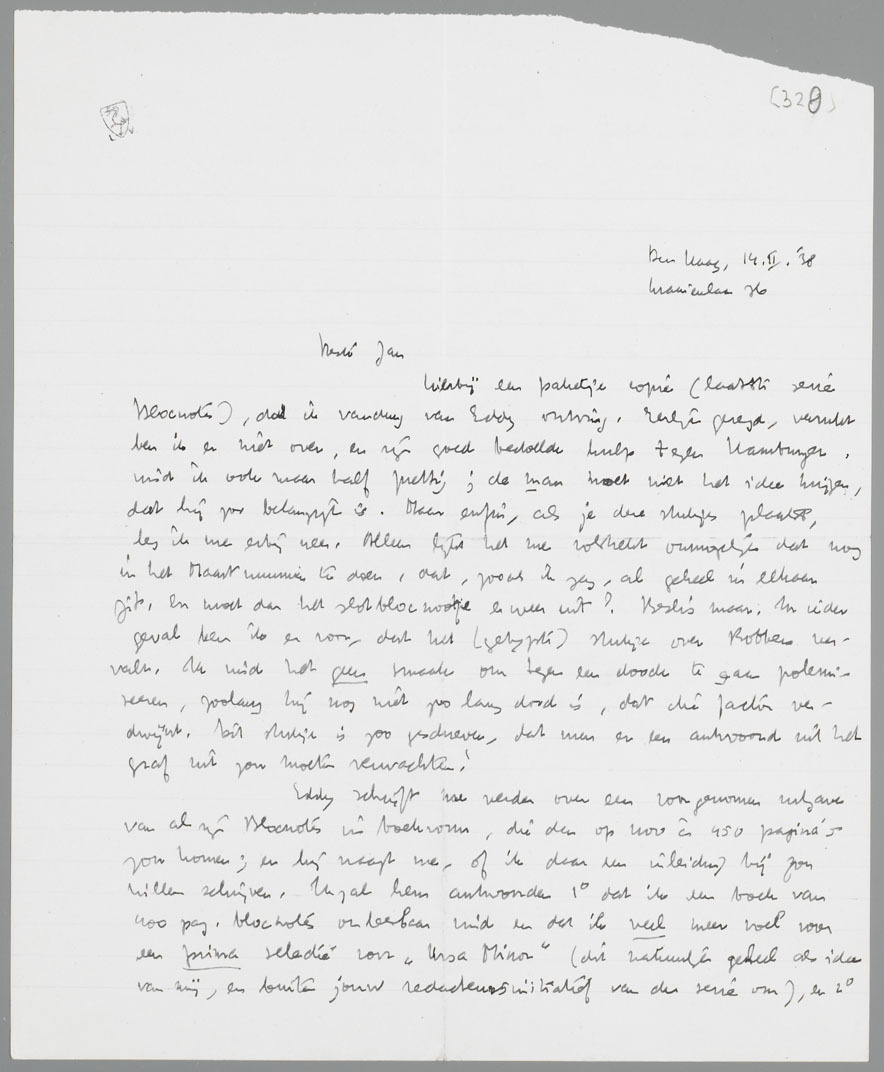 (320)
Den Haag, 14.II.'38
Kraaienlaan 36
Beste Jan
Hierbij een pakketje copie (laatste serie
Blocnotes), dat ik vandaag van Eddy ontving. Eerlijk gezegd, verrukt
ben ik er niet over, en zijn goed bedoelde hulp tegen Hamburger
vind ik ook maar half prettig; de man moet niet het idee krijgen,
dat hij zoo belangrijk is. Maar enfin, als je deze stukjes plaatst,
leg ik me erbij neer. Alleen lijkt het me volstrekt onmogelijk dat nog
in het Maartnummer te doen, dat, zooals ik zag, als geheel in elkaar
zit. En moet dan het slotblocnootje er weer uit? Beslis maar. In ieder
geval ben ik er voor, dat het (getypte) stukje over Robbers ver-
valt. Ik vind het geen smaak om tegen een doode te gaan polemi-
seeren, zoolang hij nog niet zoo lang dood is, dat die factor ver-
dwijnt. Dit stukje is zoo geschreven, dat men er een antwoord uit het
graf uit zou moeten verwachten!
Eddy schrijft me verder over een voorgenomen uitgave
van al zijn Blocnotes in boekvorm, die dan op 400 à 450 pagina's
zou komen; en hij vraagt me, of ik daar een inleiding bij zou
willen schrijven. Ik zal hem antwoorden 1° dat ik een boek van
400 pag. blocnotes onleesbaar vind en dat ik veel meer voel voor
een prima selectie voor "Ursa Minor" (dit natuurlijk geheel als idee
van mij, en buiten jouw redacteursinitiatief van de serie om), en 2°